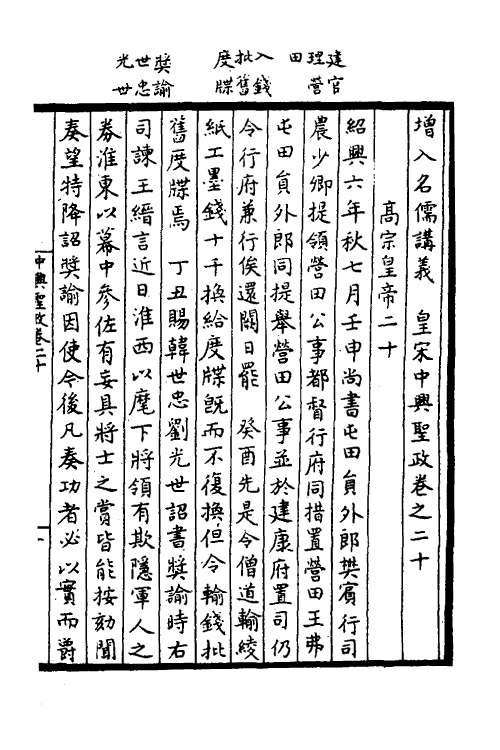 建官
理營
田
入錢
批舊
度牒
獎諭
世忠
光世
增入名儒講義　皇宋中興聖政卷之二十
高宗皇帝二十
紹興六年秋七月壬申尚書屯田員外郎樊賓行司
農少卿提領營田公事都督行府同措置營田王弗
屯田員外郎同提舉營田公事並於建康府置司仍
令行府兼行俟還闕日罷　癸酉先是令僧道輸綾
紙工墨錢十千換給度牒既而不復換但令輸錢批
舊度牒焉　丁丑賜韓世忠劉光世詔書獎諭時右
司諫王縉言近日淮西以麾下將領有欺隱軍人之
券淮東以幕中參佐有妄具將士之賞皆能按劾聞
奏望特降詔獎諭因使令後凡奏功者必以實而爵
中興聖政卷二十
一